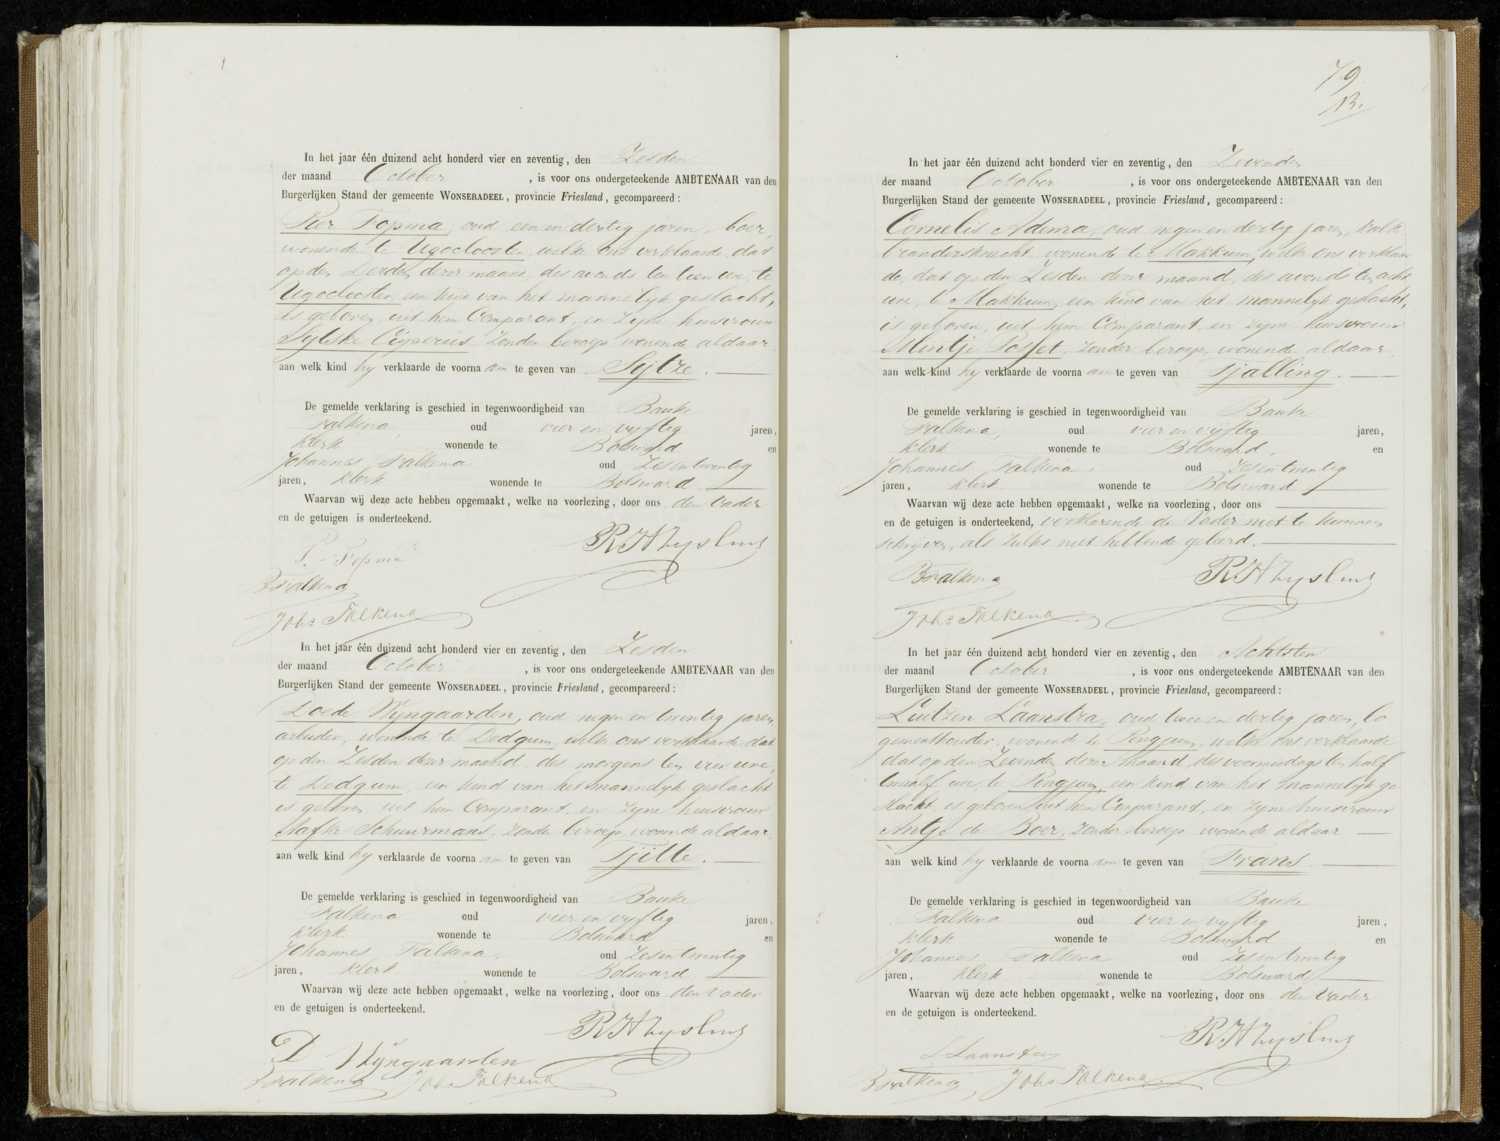 In het jaar één duizend acht honderd vier en zeventig, den Zesden
der maand October, is voor ons ondergeteekende AMBTENAAR van den
Burgerlijken Stand der gemeente WONSERADEEL, provincie Friesland, gecompareerd:
Pier Fopma, oud een en dertig jaren, boer,
wonende te Ugoclooster, welke ons verklaarde, dat
op den Derden dezer maand, des avonds ten tien ure, te
Ugoclooster, een kind van het mannelijk geslacht,
is geboren, uit hem Comparant, en zijne huisvrouw
Sytske Eyperus, zonder beroep, wonende aldaar
aan welk kind hij verklaarde de voornaam te geven van Sytze.
De gemelde verklaring is geschied in tegenwoordigheid van Bauke
Falkena, oud vier en vyftig jaren,
klerk wonende te Bolsward en
Johannes Falkena oud Zesentwintig
jaren, klerk wonende te Bolsward
Waarvan wij deze acte hebben opgemaakt, welke na voorlezing, door ons den Vader
en de getuigen is onderteekend.
P. Fopma
RHZijlstra
BFalkena
Johs Falkena
In het jaar één duizend acht honderd vier en zeventig, den Zesden
der maand October, is voor ons ondergeteekende AMBTENAAR van den
Burgerlijken Stand der gemeente WONSERADEEL, provincie Friesland, gecompareerd:
Doede Wyngaarden, oud negen en twintig jaren,
arbeider, wonende te Dedgum, welke ons verklaarde dat
op den Zesden dezer maand, des morgens ten vier ure,
te Dedgum, een kind van het mannelyk geslacht
is geboren uit hem Comparant, en zyne huisvrouw
Aafke Schuurmans, zonder beroep, wonende aldaar
aan welk kind hy verklaarde de voornaam te geven van Tjitte.
De gemelde verklaring is geschied in tegenwoordigheid van Bauke
Falkena oud vier en vyftig jaren,
klerk wonende te Bolsward en
Johannes Falkena, oud Zesentwintig
jaren, klerk wonende te Bolsward
Waarvan wij deze acte hebben opgemaakt, welke na voorlezing, door ons den Vader
en de getuigen is onderteekend.
RHZijlstra
D Wyngaarden
BFalkena Johs Falkena
79
B.
In het jaar één duizend acht honderd vier en zeventig, den Zevenden
der maand October, is voor ons ondergeteekende AMBTENAAR van den
Burgerlijken Stand der gemeente WONSERADEEL, provincie Friesland, gecompareerd:
Cornelis Adema, oud negen en dertig jaren, kalk
brandersknecht, wonende te Makkum, welke ons verklaar
de, dat op den Zesden dezer maand, des avonds te acht
ure, te Makkum, een kind van het mannelyk geslacht,
is geboren, uit hem Comparant, en zyne huisvrouw
Mintje Posset, zonder beroep, wonende aldaar
aan welk kind hy verklaarde de voornaam te geven van Tjalling.
De gemelde verklaring is geschied in tegenwoordigheid van Bauke
Falkena, oud vier en vyftig jaren,
klerk wonende te Bolsward, en
Johannes Falkena. oud Zesentwintig
jaren, klerk wonende te Bolsward
Waarvan wij deze acte hebben opgemaakt, welke na voorlezing, door ons
en de getuigen is onderteekend, verklarende de Vader niet te kunnen
schrijven, als zulks niet hebbende geleerd.
BFalkena RHZijlstra
Johs Falkena
In het jaar één duizend acht honderd vier en zeventig, den Achtsten
der maand October, is voor ons ondergeteekende AMBTENAAR van den
Burgerlijken Stand der gemeente WONSERADEEL, provincie Friesland, gecompareerd:
Luitzen Laanstra, oud twee en dertig jaren, lo
gementhouder, wonende te Pingjum, welke ons verklaarde
dat op den Zevenden dezer Maand des voormiddags ten half
twaalf ure, te Pingjum, een kind van het mannelyk ge
slacht, is geboren uit hem Comparant, en zyne huisvrouw
Antje de Boer, zonder beroep wonende aldaar
aan welk kind hy verklaarde de voornaam te geven van Frans
De gemelde verklaring is geschied in tegenwoordigheid van Bauke
Falkena oud vier en vyftig jaren,
klerk wonende te Bolsward en
Johannes Falkena oud Zesentwintig
jaren, klerk wonende te Bolsward
Waarvan wij deze acte hebben opgemaakt, welke na voorlezing, door ons den Vader
en de getuigen is onderteekend.
RHZijlstra
L Laanstra
BFalkena, Johs Falkena